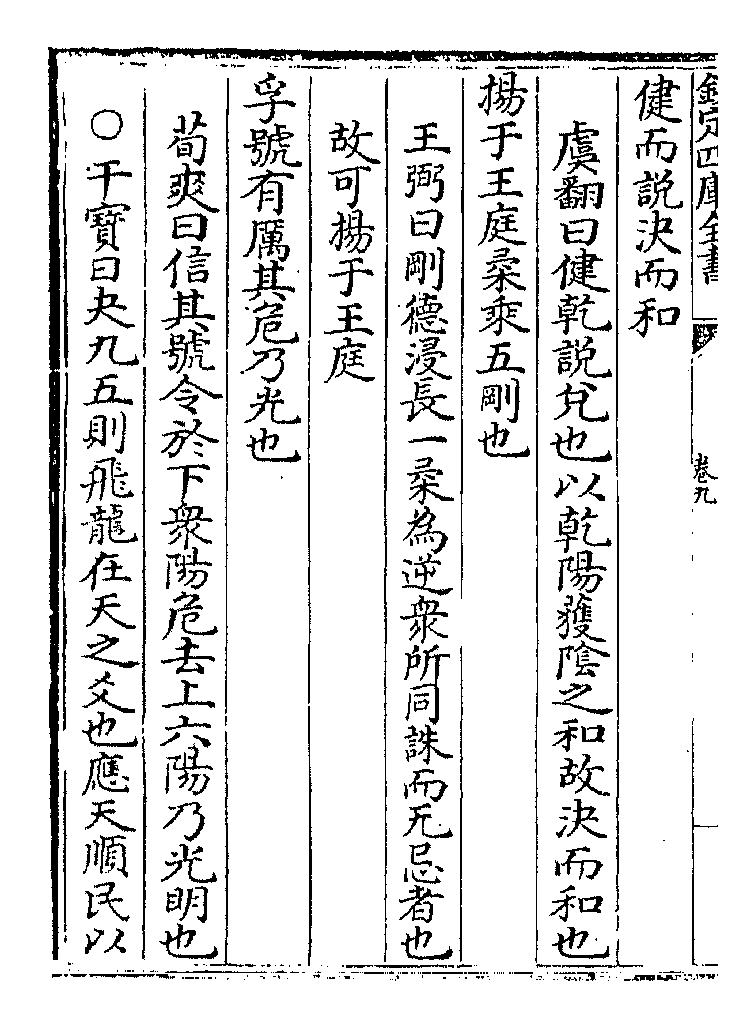 欽定四庫全書
卷九
健而說決而和
虞翻曰健乾說兌也以乾陽獲陰之和故決而和也
揚于王庭柔乘五剛也
王弼曰剛德浸長一柔為逆衆所同誅而无忌者也
故可揚于王庭
孚號有厲其危乃光也
荀爽曰信其號令於下衆陽危去上六陽乃光明也
○干寶曰夬九五則飛龍在天之爻也應天順民以